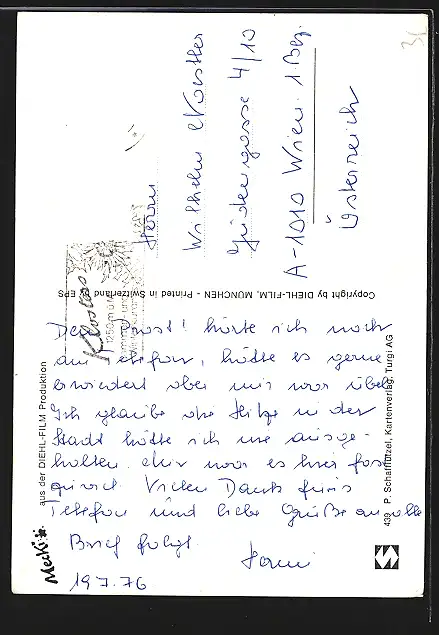 Herrn
Wilhelm
Judengasse 4/10
A-1010 Wien. 1. Bez.
Österreich
Klosters
1250 m ü. M.
Copyright by DIEHL-FILM, MÜNCHEN - Printed in Switzerland by EPS
aus der DIEHL-FILM Produktion
439 P. Schalflützel, Kartenverlag, Turgi AG
Mecki
hörte ich noch
am Telefon, hätte es gerne
erwiedert aber mir war übel.
Ich glaube die Hitze in der
Stadt hätte ich nie ausge-
halten. Mir war es hier fast
Vielen Dank fürs
Telefon und liebe Grüße an alle
Brief folgt.
19.7.76